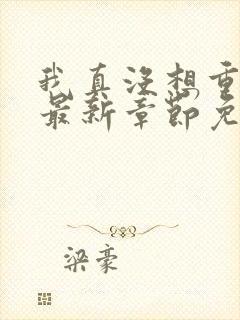 我真没想重
最新章节免
梁豪